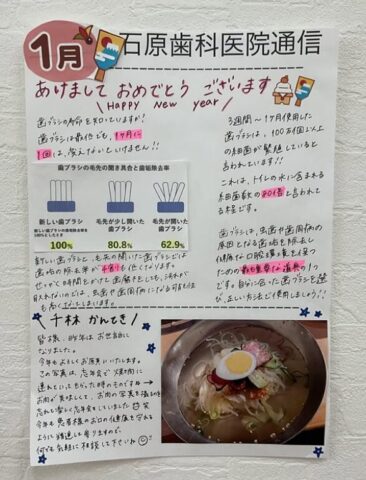 1月
石原歯科医院通信
あけまして おめでとう ございます
\ HAPPY New year /
歯ブラシの寿命を知っていますか?
歯ブラシは最低でも、1ヶ月に
1回は、変えないといけません!!
歯ブラシの毛先の開き具合と歯垢除去率
新しい歯ブラシ
毛先が少し開いた
歯ブラシ
毛先が開いた
歯ブラシ
新しい歯ブラシの歯垢除去率を
100%としたとき
100%
80.8%
62.9%
新しい歯ブラシと、毛先の開いた歯ブラシでは
歯垢の除去率が4割も低くなります。
せっかく時間をかけて歯磨きをしても汚れが
3週間〜1ヶ月使用した
歯ブラシは、100万個以上
の細菌が繁殖していると
言われています!!
これは、トイレの水に含まれる
細菌数の80倍と言われて
る程です。
歯ブラシは、虫歯や歯周病の
原因となる歯垢を除去し
健康な口腔環境を保つ
ための最も重要な道具の1つ
です。自分に合った歯ブラシを選
び、正しい方法で使用しましょう!!
千林 かんてき
皆様、昨年はお世話に
なりました。
今年もよろしくお願いいたします。
この写真は、忘年会で焼肉に
連れていってもらった時のものです🐄→
お肉が美味しくて、お肉の写真を撮るのを
忘れる楽しく忘年会をしていました 笑
今年も患者様のお口の健康を守れる
ように精進して参りますので、
何でも気軽に相談して下さいね